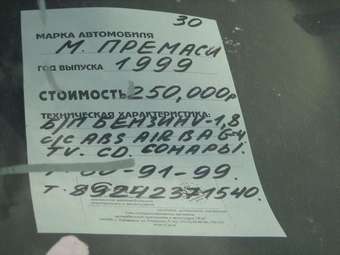 30
МАРКА АВТОМОБИЛЯ
М. ПРЕМАСИ
ГОД ВЫПУСКА 1999
СТОИМОСТЬ 250,000р
ТЕХНИЧЕСКАЯ ХАРАКТЕРИСТИКА:
Б/П БЕНЗИН-1,8
С/С ABS AIRBAG-4
TV. CD. СОНАРЫ.
Т. 60-91-99.
Т. 89242371540.